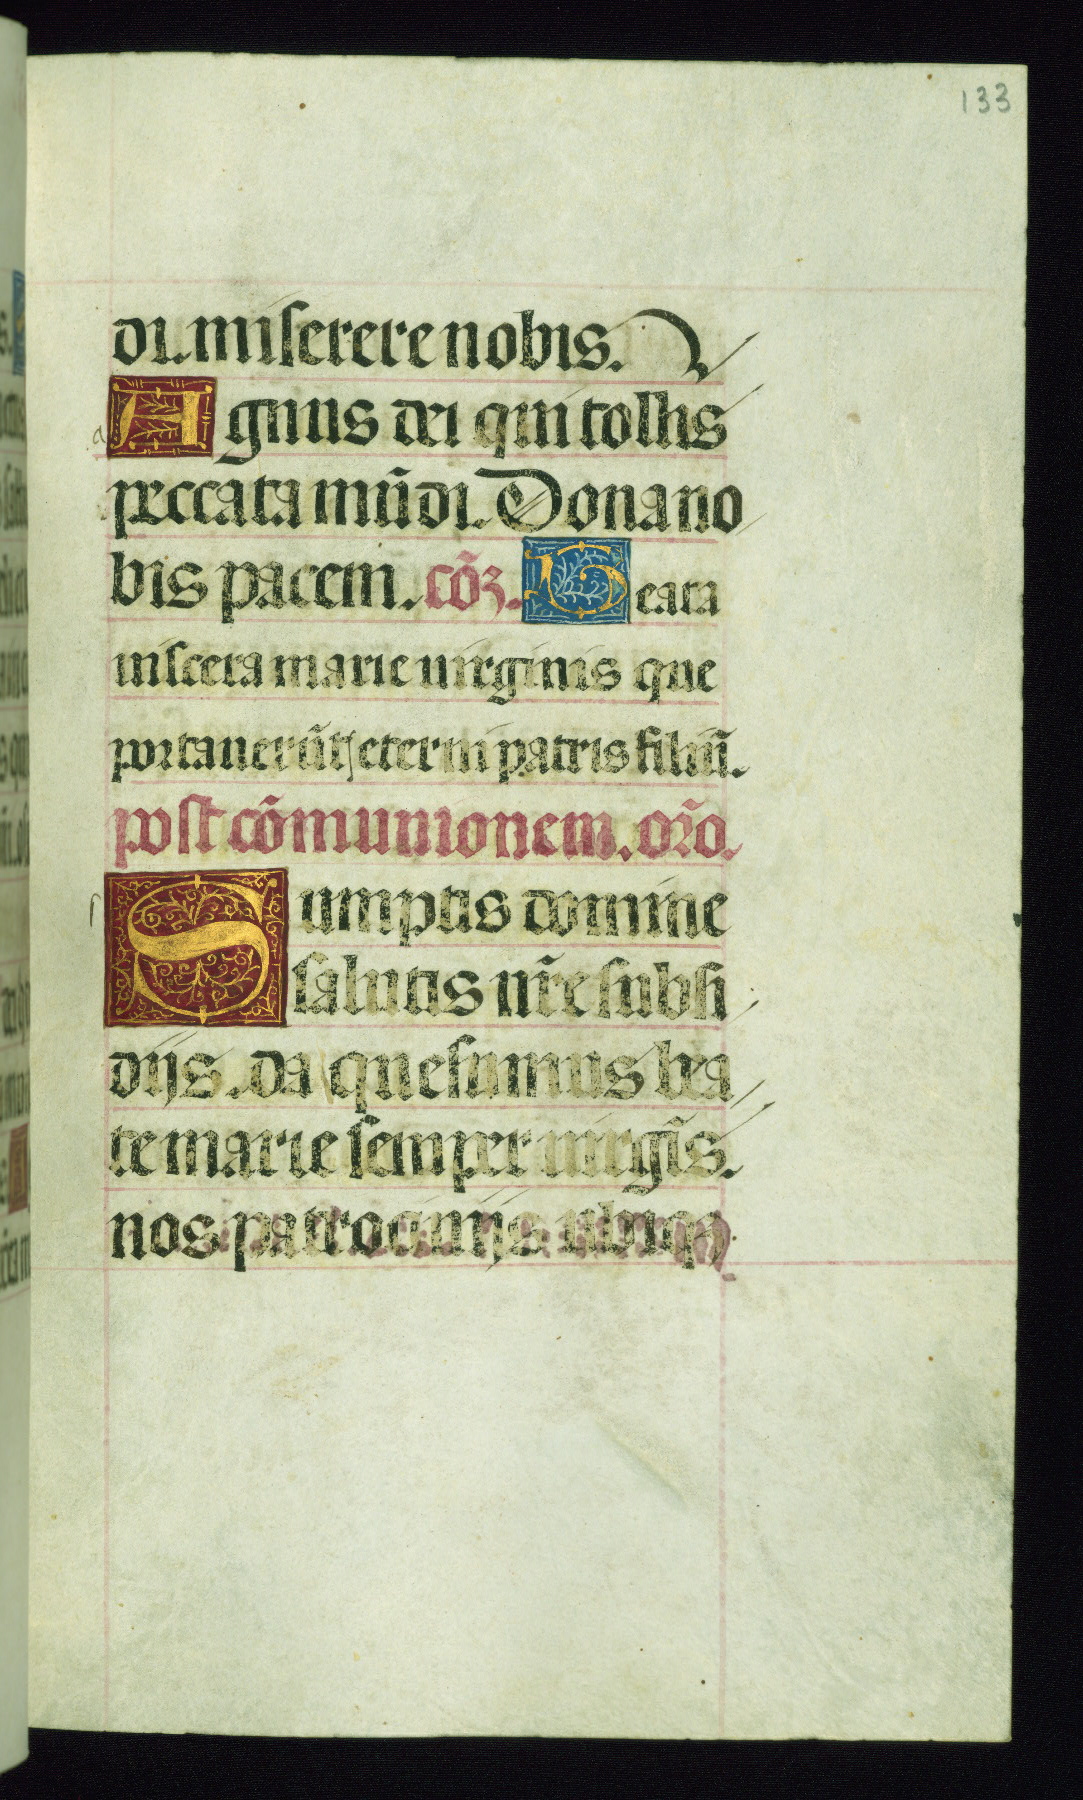 133
di. miserere nobis.
Agnus dei qui tollis
peccata mūdi. Dona no
bis pacem. cōꝫ. Beata
uiscera marie uirginis que
portauerūt eterni patris filiū.
post cōmunionem. or̄o.
Sumptis domine
salutis nr̄e subsi
dijs. da quesumus bea
te marie semper uirgīs.
nos patrocinijs ubiqꝫ